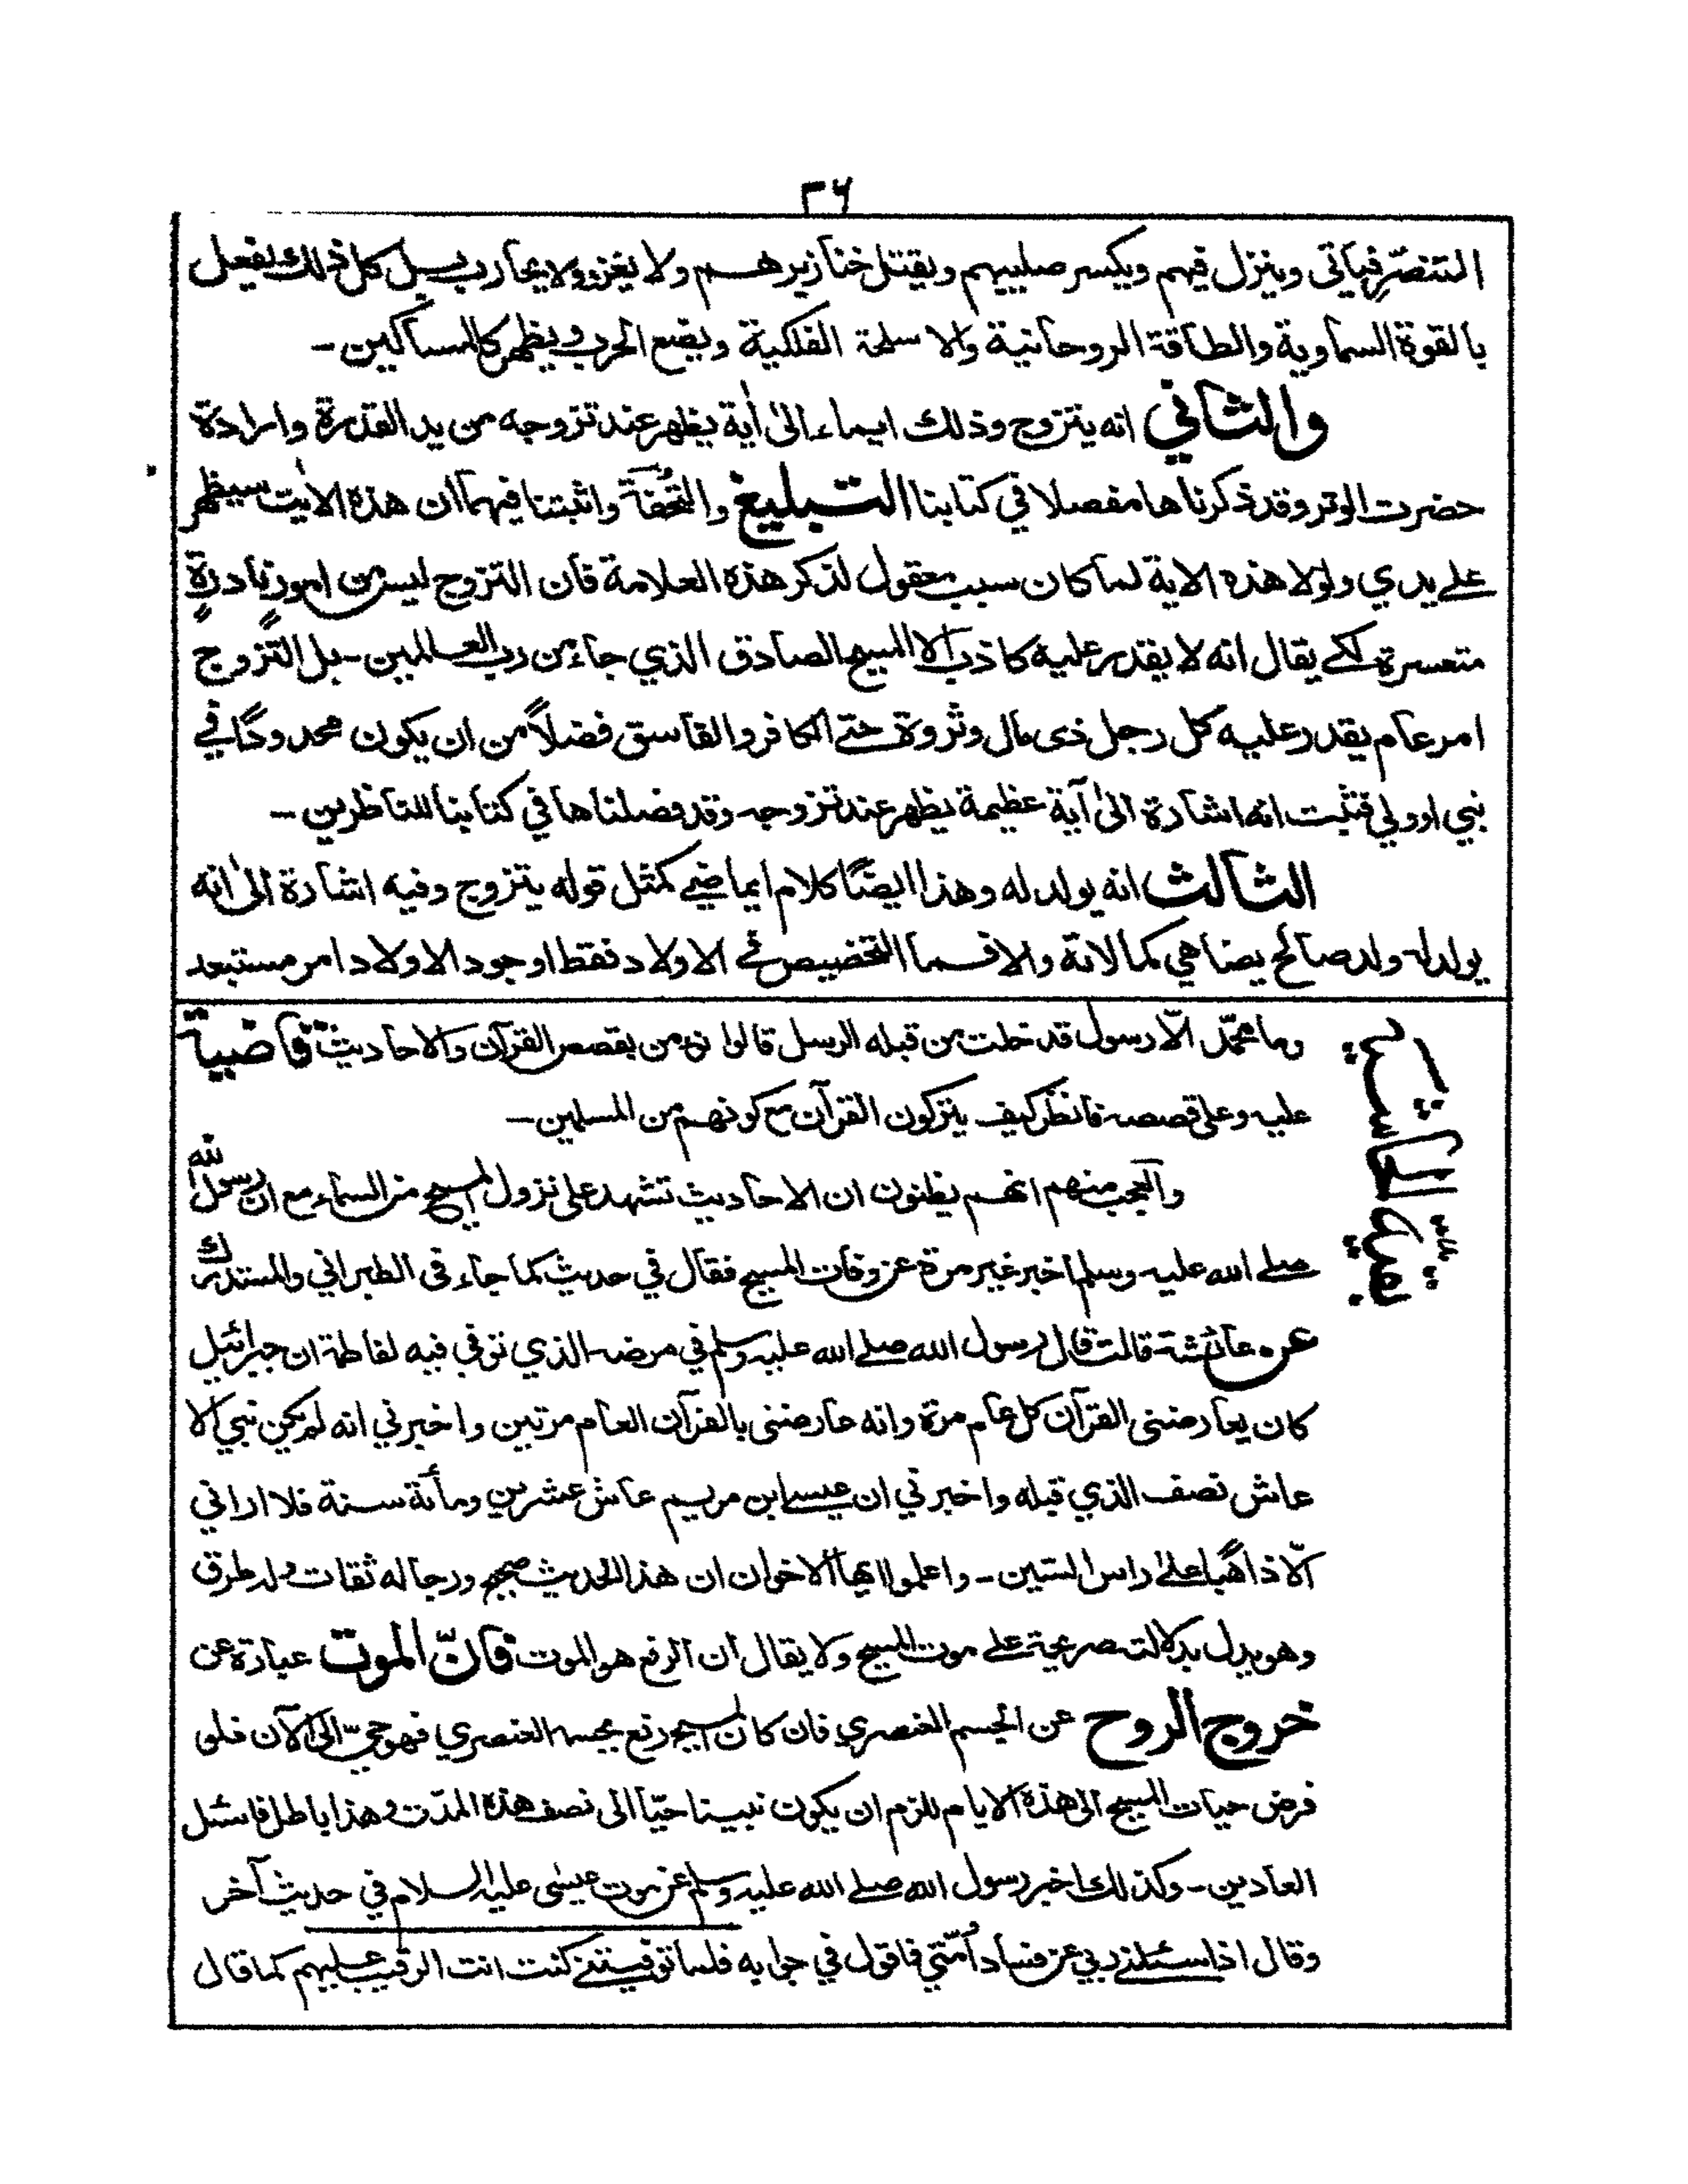 ٢٦
التنصّر فيأتى وينزل فيهم ويكسر صليبهم ويقتل خنازيرهم ولا يغزو ولا يحارب بل كل ذلك يفعل
بالقوة السماوية والطاقة الروحانية والاسلحة الفلكية ويضع الحرب ويظهر كالمساكين-
والثاني انه يتزوج وذلك ايماء الىٰ أية يظهر عند تزوجه من يد القدرة وارادة
حضرت الوتر وقد ذكرناها مفصلا في كتابنا التبليغ والتحفة واثبتنا فيهما ان هذه الأيت سيظهر
على يدي ولولا هذه الاية لما كان سبب معقول لذكر هذه العلامة فان التزوج ليس من امور نادرة
متعسرة لكى يقال انه لا يقدر عليه كاذب الا المسيح الصادق الذي جاء من رب العالمين- بل التزوج
امر عام يقدر عليه كل رجل ذى مال وثروة حتى الكافر والفاسق فضلاً من ان يكون محدودًا في
نبي او ولي فثبت انه اشارة الىٰ آية عظيمة يظهر عند تزوجه وقد فصلناها في كتابنا للناظرين-
الثالث انه يولد له وهذا ايضًا كلام ايماضي كمثل قوله يتزوج وفيه اشارة الىٰ انه
يولد له ولد صالح يضاهي كمالاته والا فما التخصيص في الاولاد فقط اوجود الاولاد امر مستبعد
بقية الحاشية
وما محمّد الّا رسول قد خلت من قبله الرسل قالوا نؤمن بقصص القرآن والاحاديث قاضية
عليه وعلى قصصه فانظر كيف يتركون القرآن مع كونهم من المسلمين-
والعجب منهم انهم يظنون ان الاحاديث تشهد على نزول المسيح من السماء مع ان رسول الله
صلى الله عليه وسلم اخبر غير مرة عن وفات المسيح فقال في حديث كما جاء فى الطبراني والمستدرك
عن عائشة قالت قال رسول الله صلى الله عليه وسلم في مرضه الذي توفي فيه لفاطمة ان جبرائيل
كان يعارضنى القرآن كل عام مرة وانه عارضنى بالقرآن العام مرتين واخبرني انه لم يكن نبي الا
عاش نصف الذي قبله واخبرني ان عيسى ابن مريم عاش عشرين ومأئة سنة فلا اراني
الّا ذاهبًا على راس الستين- واعلموا ايها الاخوان ان هذا الحديث صحيح ورجاله ثقات وله طرق
وهو يدل بدلالت صريحة على موت المسيح ولا يقال ان الرفع هو الموت فانّ الموت عبارة عن
خروج الروح عن الجسم العنصري فان كان المسيح رفع بجسمه العنصري فهو حيّ الى الآن فلو
فرض حيات المسيح الى هذه الايام للزم ان يكون نبينا حيّا الى نصف هذه المدّت وهذا باطل فاسئل
العادين- وكذلك اخبر رسول الله صلى الله عليه وسلم عن موت عيسى عليه السلام في حديث آخر
وقال اذا سئلنى ربي عن فساد اُمّتي فاقول في جوابه فلما توفيتنى كنت انت الرقيب عليهم كما قال